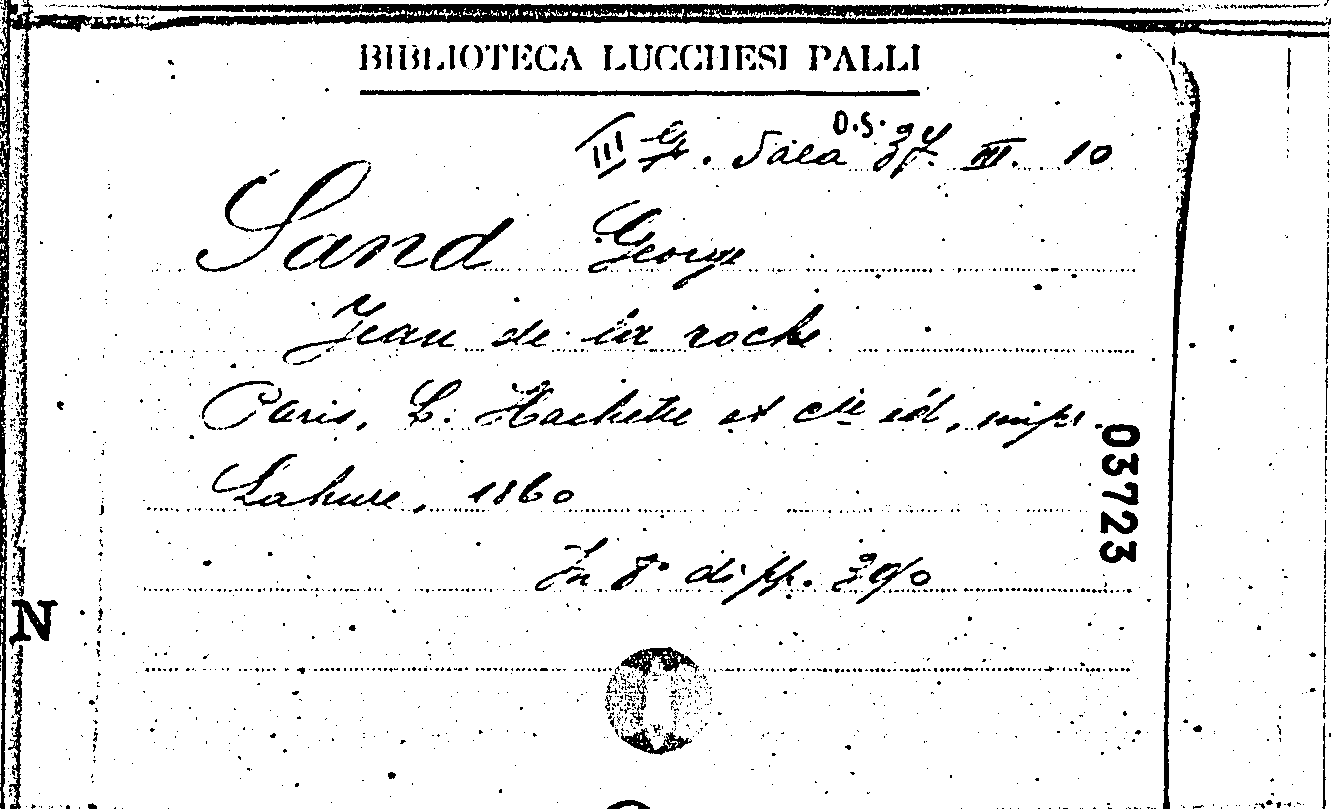 BIBLIOTECA LUCCHESI PALLI
O.S.
III Gr. Sala 37. III. 10
Sand George
Jean de la roche
Paris, L. Hachette et Cie éd, impr.
Lahure, 1860
In 8° di pp. 390
03723
N